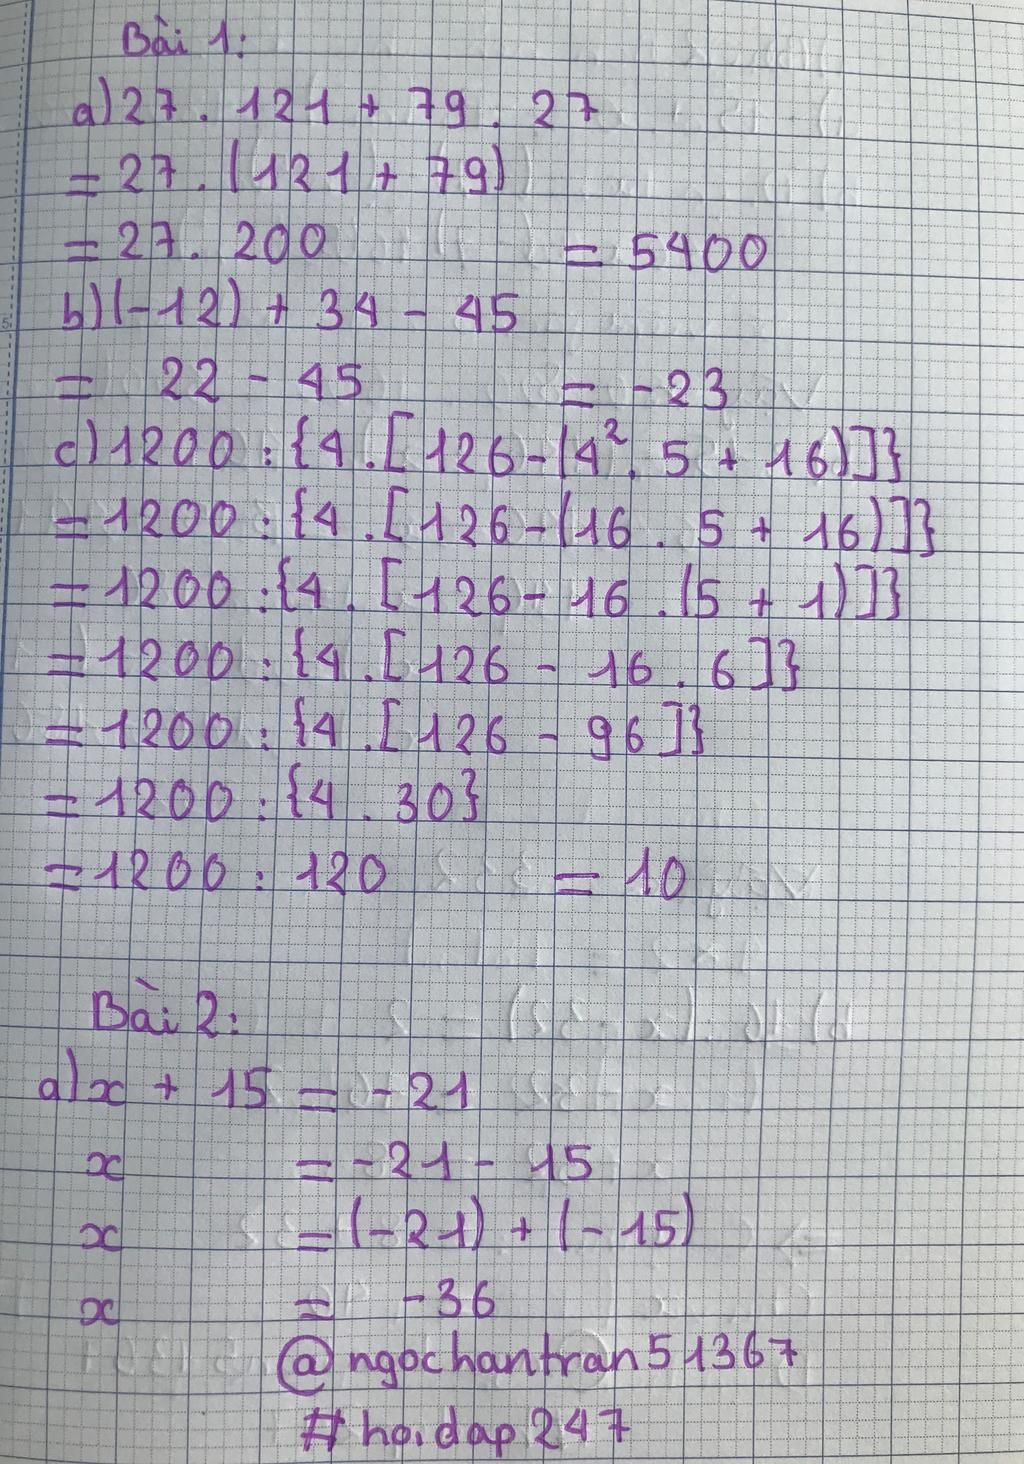 Bài 1:
a) 27 . 121 + 79 . 27
= 27 . (121 + 79)
= 27 . 200 = 5400
b) (-12) + 34 - 45
= 22 - 45 = -23
c) 1200 : {4 . [126 - (4² . 5 + 16)]}
= 1200 : {4 . [126 - (16 . 5 + 16)]}
= 1200 : {4 . [126 - 16 . (5 + 1)]}
= 1200 : {4 . [126 - 16 . 6]}
= 1200 : {4 . [126 - 96]}
= 1200 : {4 . 30}
= 1200 : 120 = 10
Bài 2:
a) x + 15 = -21
x = -21 - 15
x = (-21) + (-15)
x = -36
@ngochantran51367
#hoidap247